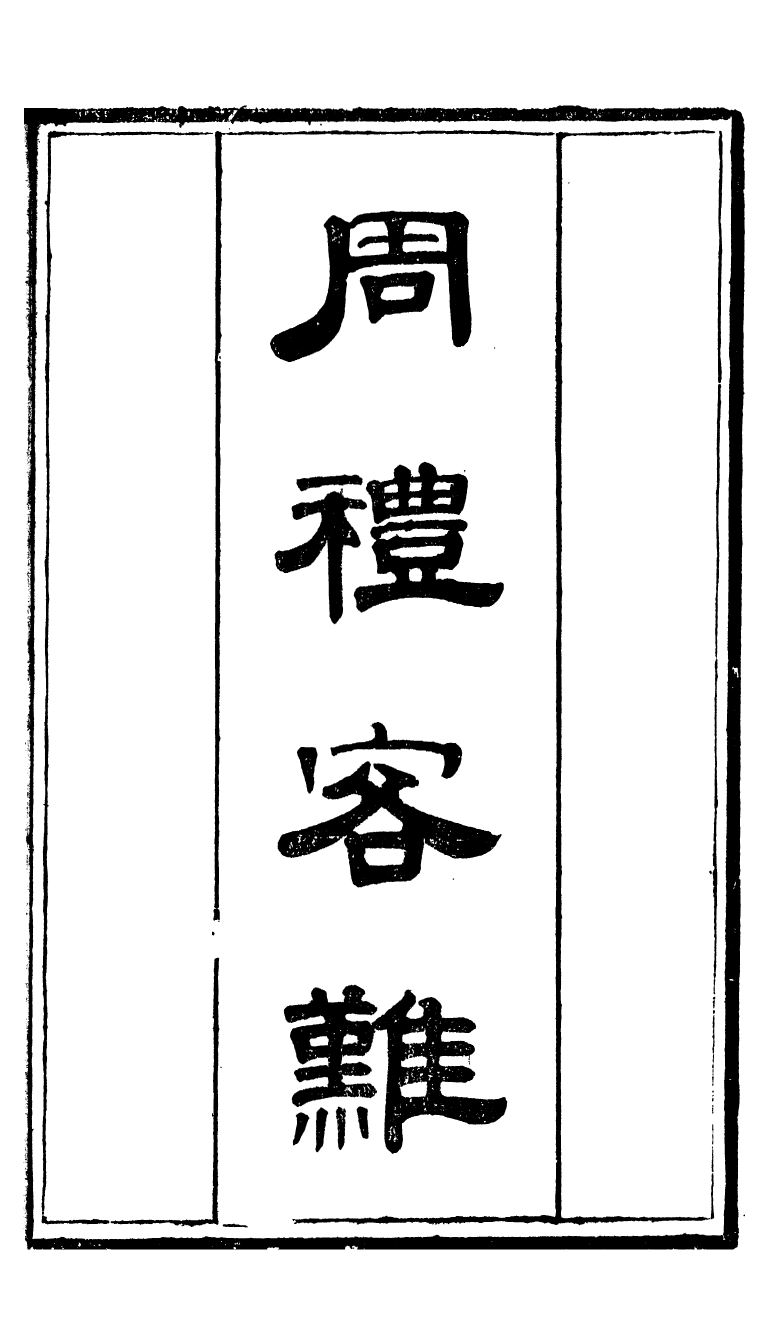 周禮客難